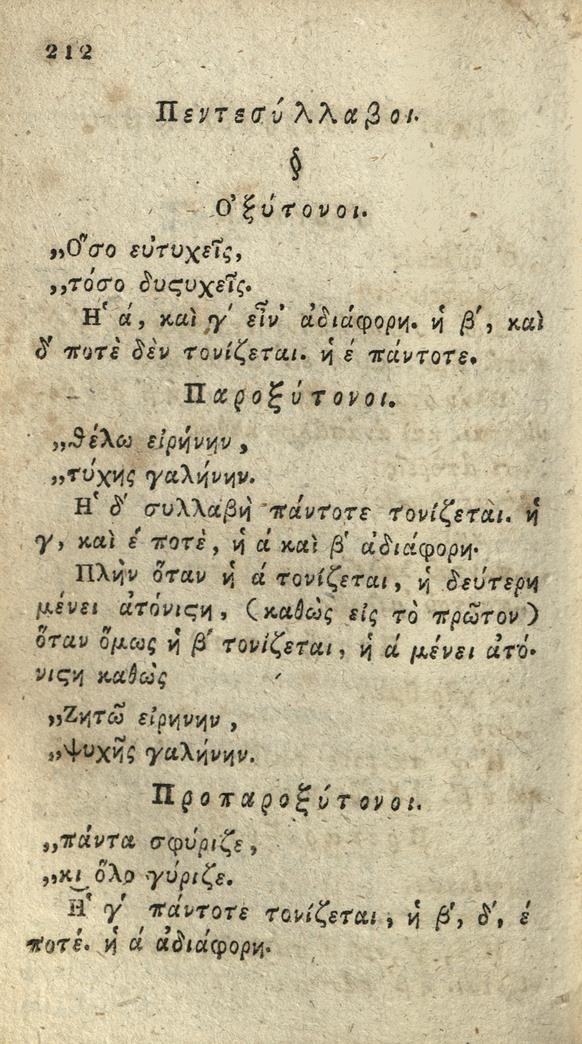 212
Πεντεσύλλαβοι.
§
Ὀξύτονοι.
„Ὅσο εὐτυχεῖς,
„τόσο δυςυχεῖς.
Ἡ ά, καὶ γ´ εἶν' ἀδιάφορη. ἡ β´, καὶ
δ´ ποτὲ δὲν τονίζεται. ἡ έ πάντοτε.
Παροξύτονοι.
„θέλω εἰρήνην,
„τύχης γαλήνην.
Ἡ δ´ συλλαβὴ πάντοτε τονίζεται. ἡ
γ, καὶ έ ποτὲ, ἡ ά καὶ β´ ἀδιάφορη.
Πλὴν ὅταν ἡ ά τονίζεται, ἡ δεύτερη
μένει ἀτόνιϛη, (καθὼς εἰς τὸ πρῶτον)
ὅταν ὅμως ἡ β´ τονίζεται, ἡ ά μένει ἀτό-
νιϛη καθὼς
„Ζητῶ εἰρήνην,
„Ψυχῆς γαλήνην.
Προπαροξύτονοι.
„πάντα σφύριζε,
„κι ὅλο γύριζε.
Ἡ γ´ πάντοτε τονίζεται, ἡ β´, δ´, έ
ποτέ. ἡ ά ἀδιάφορη.